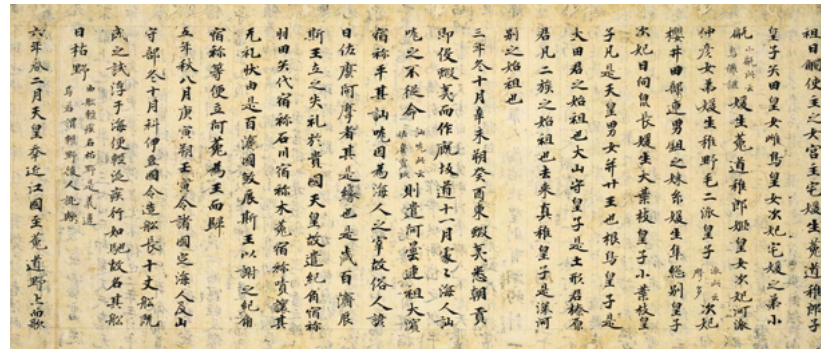 祖日觸使主之女宮主宅媛生菟道稚郎子
皇子矢田皇女雌鳥皇女次妃宅媛之弟小
甂小甂此云烏儺謎媛生菟道稚郎姫皇女次妃河派
仲彦女弟媛生稚野毛二派皇子派此云摩多次妃
櫻井田部連男鉏之妹糸媛生隼總別皇子
次妃日向泉長媛生大葉枝皇子小葉枝皇
子凡是天皇男女并廿王也根鳥皇子是
大田君之始祖也大山守皇子是土形君榛原
君凡二族之始祖也去来真稚皇子是深河
別之始祖也
三年冬十月辛未朔癸酉東蝦夷悉朝貢
即役蝦夷而作厩坂道十一月處々海人訕
哤之不從命訕哤此云佐麼賣玖則遣阿曇連祖大濱
宿祢平其訕哤因為海人之宰故俗人諺
曰佐麼阿摩者其是緣也是歳百濟辰
斯王立之失礼於貴國天皇故遣紀角宿祢
羽田矢代宿祢石川宿祢木菟宿祢嘖讓其
无礼狀由是百濟國敓辰斯王以謝之紀角
宿祢等便立阿菀為王而歸
五年秋八月庚寅朔壬寅令諸國定海人及山
守部冬十月科伊豆國令造船長十丈船既
成之試浮于海便輕泛疾行如馳故名其船
曰枯野由船輕疾名枯野是義違焉若謂輕野後人訛歟
六年春二月天皇幸近江國至菟道野上而歌